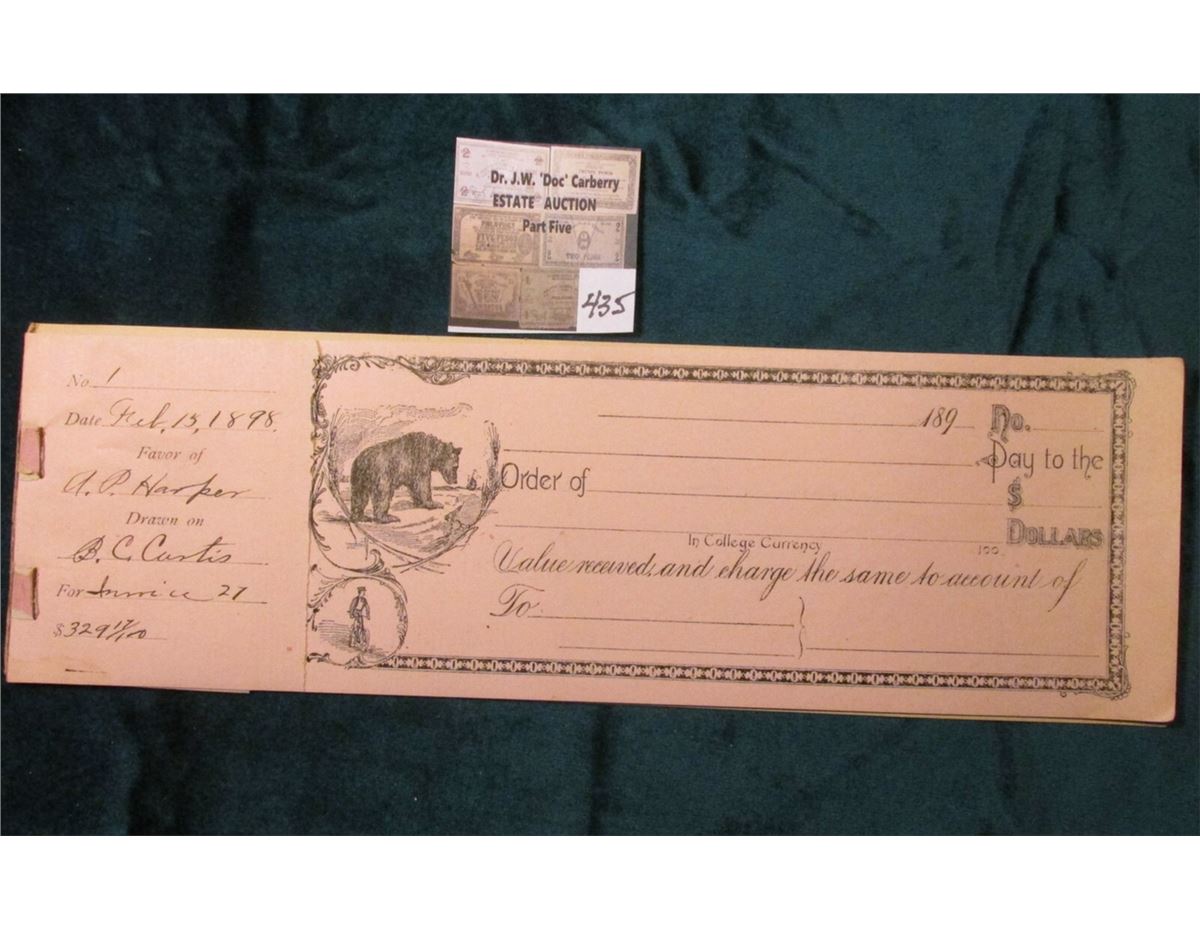 Dr. J.W. 'Doc' Carberry
ESTATE AUCTION
Part Five
2
2
2
2
TWO
435
No. 1
Date Feb. 15, 1898.
Favor of
A. P. Harper
Drawn on
B. C. Curtis
For Invoice 27
$329 17/100
189 No.
Pay to the
Order of $
In College Currency 100 DOLLARS
Value received, and charge the same to account of
To